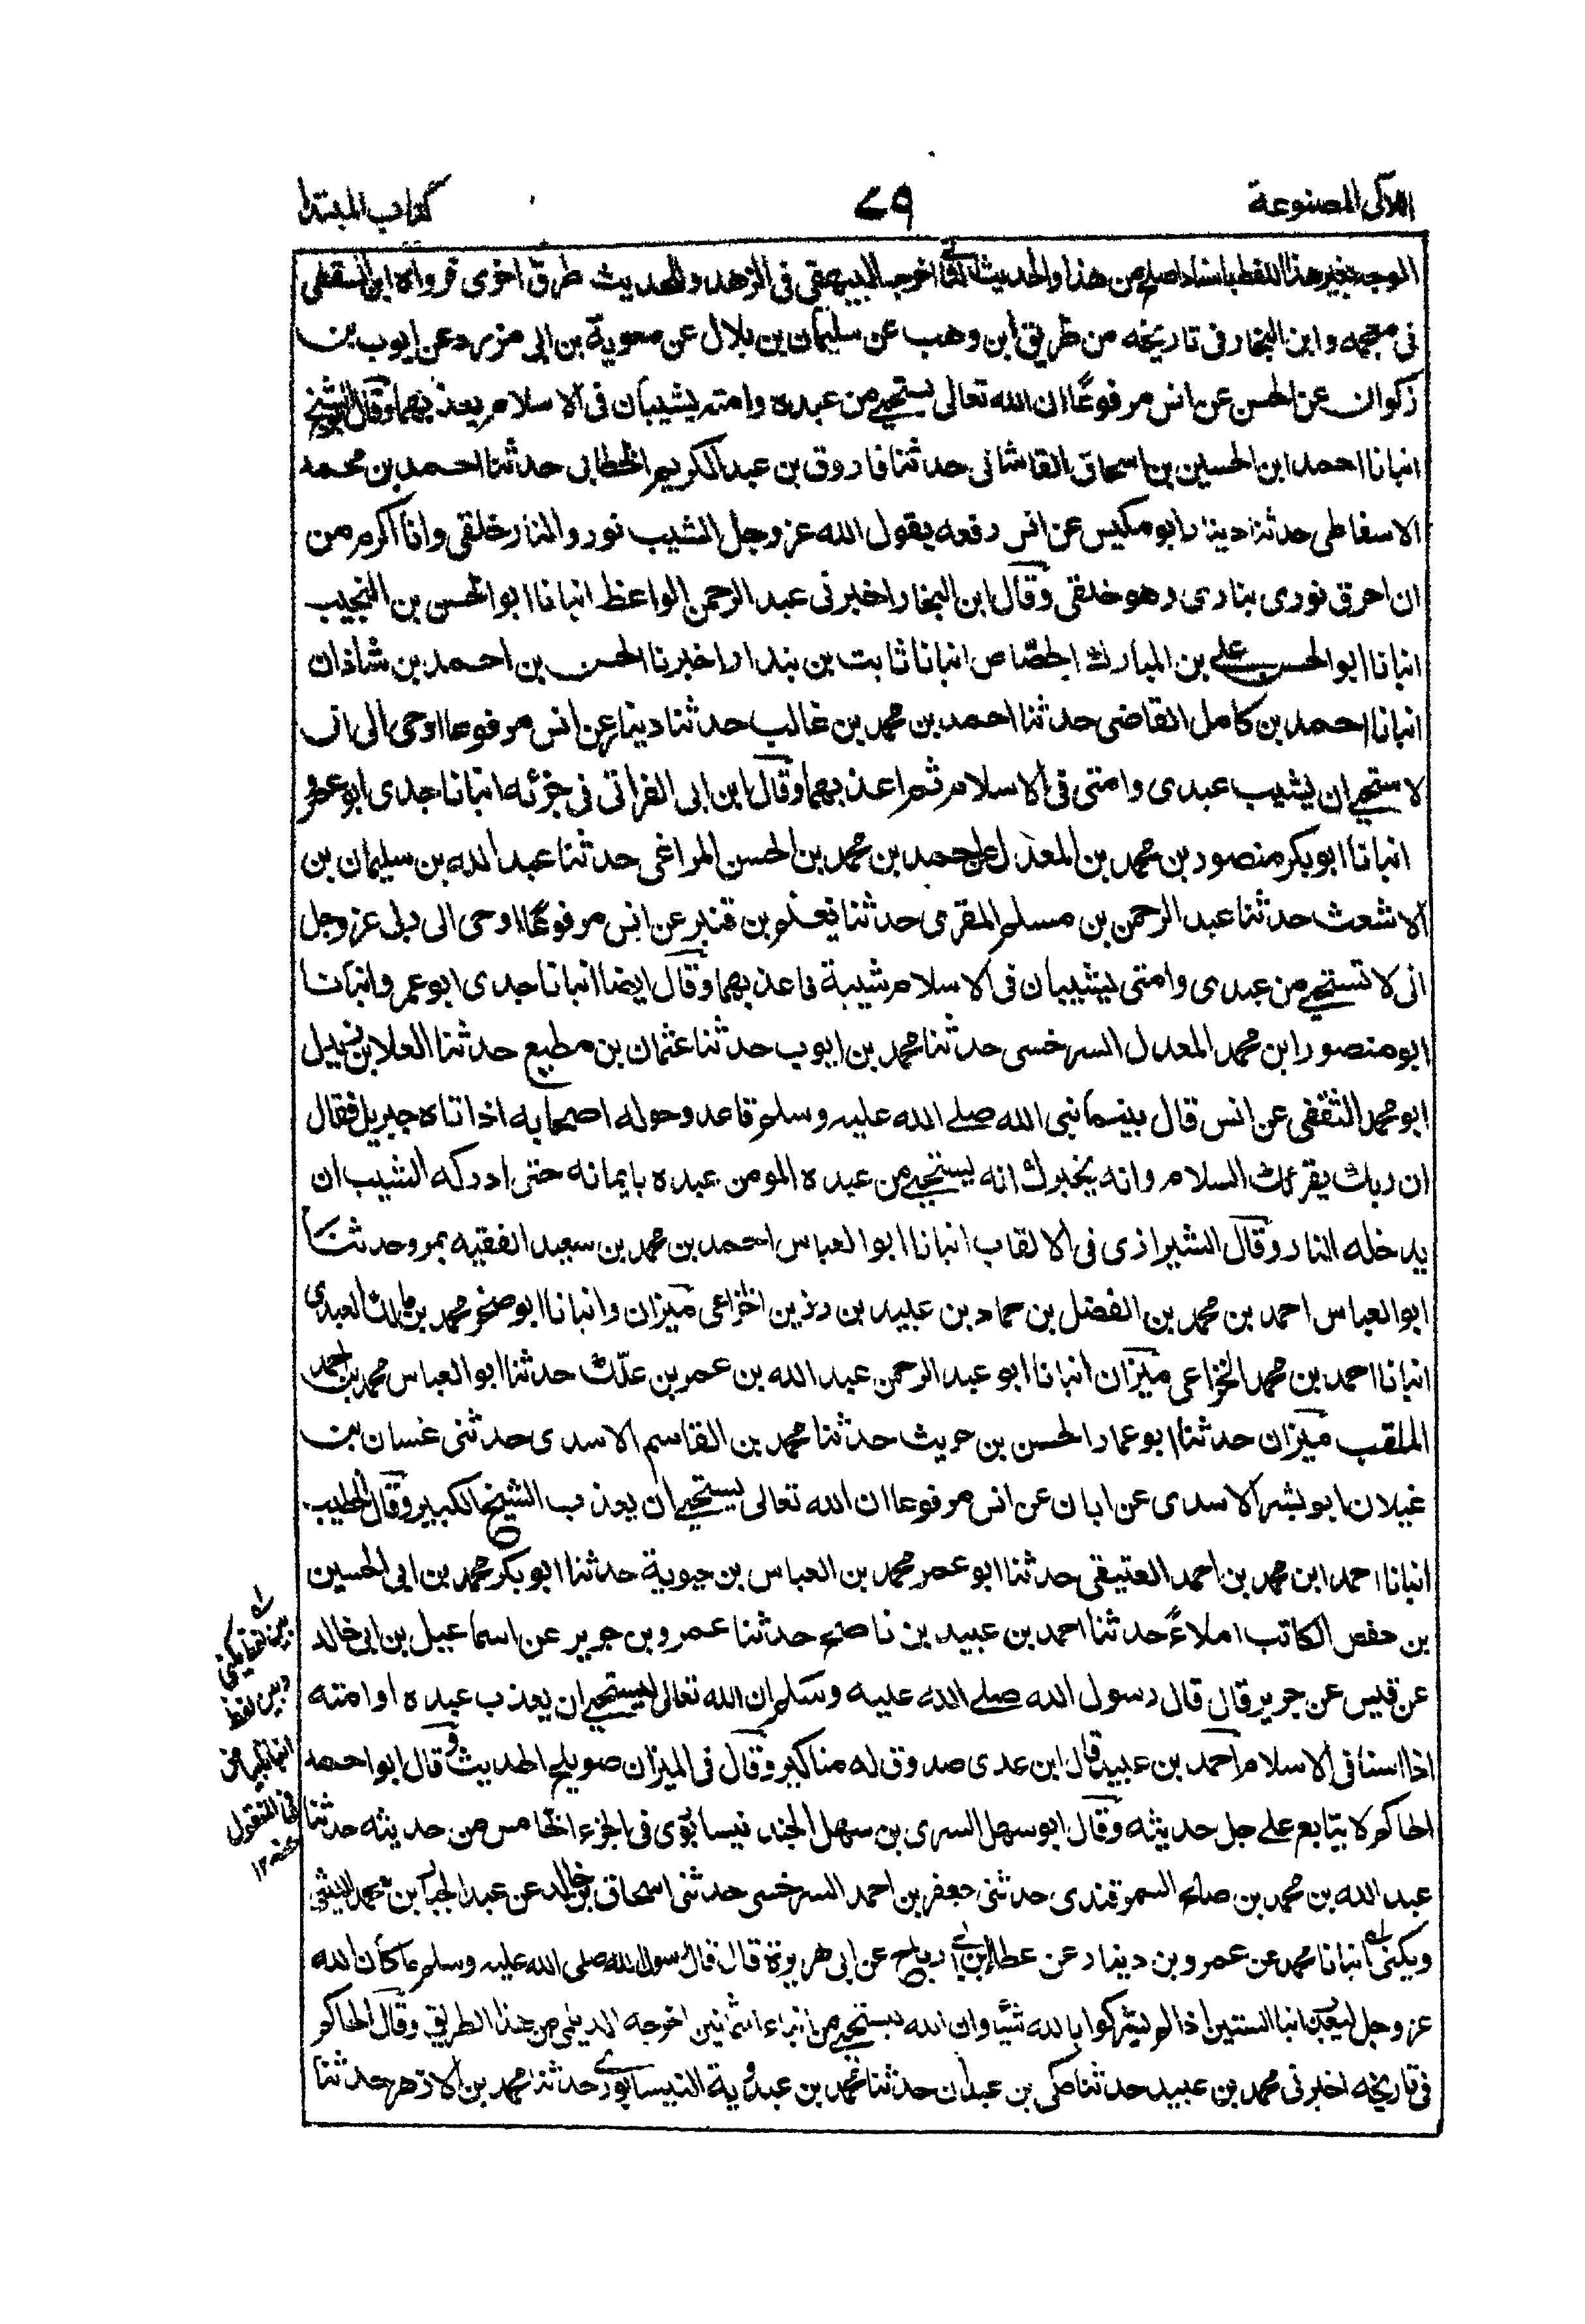 اللآلى المصنوعة
٧٩
كتاب المبتدا
الوجه بغير هذا اللفظ باسناد اصلح من هذا والحديث الثانى اخرجه البيهقى فى الزهد وللحديث طرق اخرى فرواه ابن السقطى
فى معجمه وابن النجار فى تاريخه من طريق ابن وهب عن سليمان بن بلال عن معوية بن ابى مزرد عن ايوب بن
زكوان عن الحسن عن انس مرفوعًا ان الله تعالى يستحيى من عبده وامته يشيبان فى الاسلام يعذبهما وقال ابو الشيخ
انبانا احمد ابن الحسين بن اسحاق القاشانى حدثنا فاروق بن عبد الكريم الخطابى حدثنا احمد بن محمد
الاسفاطى حدثنا دينار ابو مكيس عن انس رفعه يقول الله عز وجل الشيب نور والنار خلقى وانا اكرم من
ان احرق نورى بنارى وهو خلقى وقال ابن النجار اخبرنى عبد الرحمن الواعظ انبانا ابو الحسن بن النجيب
انبانا ابو الحسن على بن المبارك الجصاص انبانا ثابت بن بندار اخبرنا الحسن بن احمد بن شاذان
انبانا احمد بن كامل القاضى حدثنا احمد بن محمد بن غالب حدثنا دينار عن انس مرفوعا اوحى الى انى
لا ستحيى ان يشيب عبدى وامتى فى الاسلام ثم اعذبهما وقال ابن ابى الفراتى فى جزئه انبانا جدى ابو عمرو
انبانا ابو بكر منصور بن محمد بن المعدل احمد بن محمد بن الحسن المراغى حدثنا عبد الله بن سليمان بن
الاشعث حدثنا عبد الرحمن بن مسلم المقرى حدثنا يغنم بن قنبر عن انس مرفوعًا اوحى الى ربى عز وجل
انى لا تستحيى من عبدى وامتى يشيبان فى الاسلام شيبة فاعذبهما وقال ايضا انبانا جدى ابو عمر وانبانا
ابو منصور ابن محمد المعدل السرخسى حدثنا محمد بن ايوب حدثنا عثمان بن مطيع حدثنا العلا بن زيدل
ابو محمد الثقفى عن انس قال بينما نبى الله صلى الله عليه وسلم قاعد وحوله اصحابه اذا تاه جبريل فقال
ان ربك يقرئك السلام وانه يخبرك انه يستحيى من عبده المومن عبده بايمانه حتى ادركه الشيب ان
يدخله النار وقال الشيرازى فى الالقاب انبانا ابو العباس احمد بن محمد بن سعيد الفقيه بمرو حدثنا
ابو العباس احمد بن محمد بن الفضل بن حماد بن عبيد بن رزين الخزاعى ميزان وانبانا ابو صخر محمد بن مالك العبدى
انبانا احمد بن محمد الخزاعى ميزان انبانا ابو عبد الرحمن عبد الله بن عمر بن علك حدثنا ابو العباس محمد بن احمد
الملقب ميزان حدثنا ابو عمار الحسن بن حريث حدثنا محمد بن القاسم الاسدى حدثنى غسان بن
غيلان ابو بشر الاسدى عن ابان عن انس مرفوعا ان الله تعالى يستحيى ان يعذب الشيخ الكبير وقال الخطيب
انبانا احمد ابن محمد بن احمد العتيقى حدثنا ابو عمر محمد بن العباس بن حيوية حدثنا ابو بكر محمد بن ابى الحسين
بن حفص الكاتب املاءً حدثنا احمد بن عبيد بن ناصح حدثنا عمرو بن جرير عن اسماعيل بن ابى خالد
عن قيس عن جرير قال قال رسول الله صلى الله عليه وسلم ان الله تعالى ليستحيى ان يعذب عبده او امته
اذا اسنا فى الاسلام احمد بن عبيد قال ابن عدى صدوق له مناكير وقال فى الميزان صويلح الحديث وقال ابو احمد
الحاكم لا يتابع على جل حديثه وقال ابو سهل السرى بن سهل الجند نيسابورى فى الجزء الخامس من حديثه حدثنا
عبد الله بن محمد بن صالح السمرقندى حدثنى جعفر بن احمد السرخسى حدثنى اسحاق بن خالد عن عبد الجبار بن محمد
ويكنى انبانا محمد عن عمرو بن دينار عن عطا بن ابى رباح عن ابى هريرة قال قال رسول الله صلى الله عليه وسلم ما كان الله
عز وجل ليعذب ابنا الستين اذا لم يشركوا بالله شيئا وان الله ليستحيى من ابناء الثمانين اخرجه الديلمى من هذا الطريق وقال الحاكم
فى تاريخه اخبرنى محمد بن عبيد حدثنا مكى بن عبدان حدثنا محمد بن عبدوية النيسابورى حدثنا محمد بن الازهر حدثنا